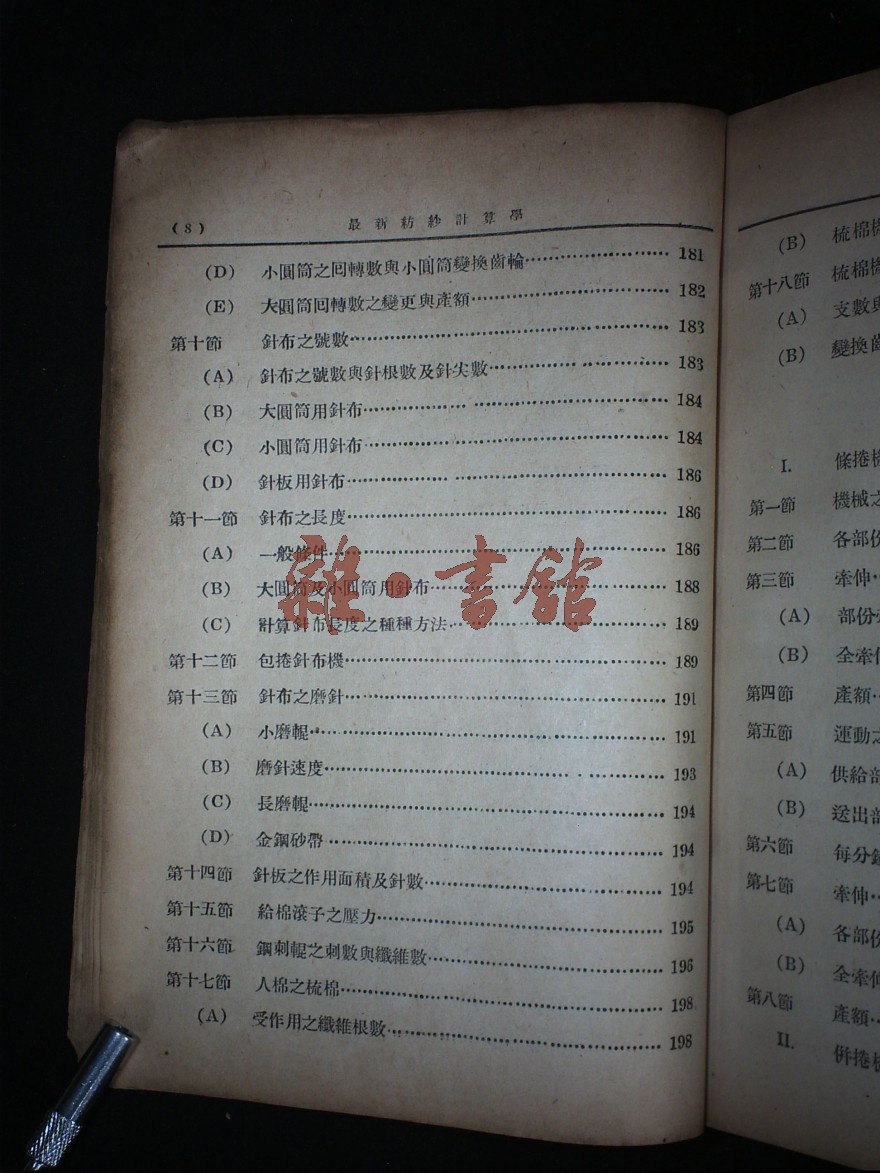 (8) 最新紡紗計算學
(D) 小圓筒之回轉數與小圓筒變換齒輪 181
(E) 大圓筒回轉數之變更與產額 182
第十節 針布之號數 183
(A) 針布之號數與針根數及針尖數 183
(B) 大圓筒用針布 184
(C) 小圓筒用針布 184
(D) 針板用針布 186
第十一節 針布之長度 186
(A) 一般條件 186
(B) 大圓筒及小圓筒用針布 188
(C) 計算針布長度之種種方法 189
第十二節 包捲針布機 189
第十三節 針布之磨針 191
(A) 小磨輥 191
(B) 磨針速度 193
(C) 長磨輥 194
(D) 金鋼砂帶 194
第十四節 針板之作用面積及針數 194
第十五節 給棉滾子之壓力 195
第十六節 鋼刺輥之刺數與纖維數 196
第十七節 人棉之梳棉 198
(A) 受作用之纖維根數 198
雜·書館
(B) 梳棉機
第十八節 梳棉機
(A) 支數與
(B) 變換齒
I. 條捲機
第一節 機械之
第二節 各部份
第三節 牽伸
(A) 部份牽
(B) 全牽伸
第四節 產額
第五節 運動之
(A) 供給部
(B) 送出部
第六節 每分鐘
第七節 牽伸
(A) 各部份
(B) 全牽伸
第八節 產額
II. 併捲機